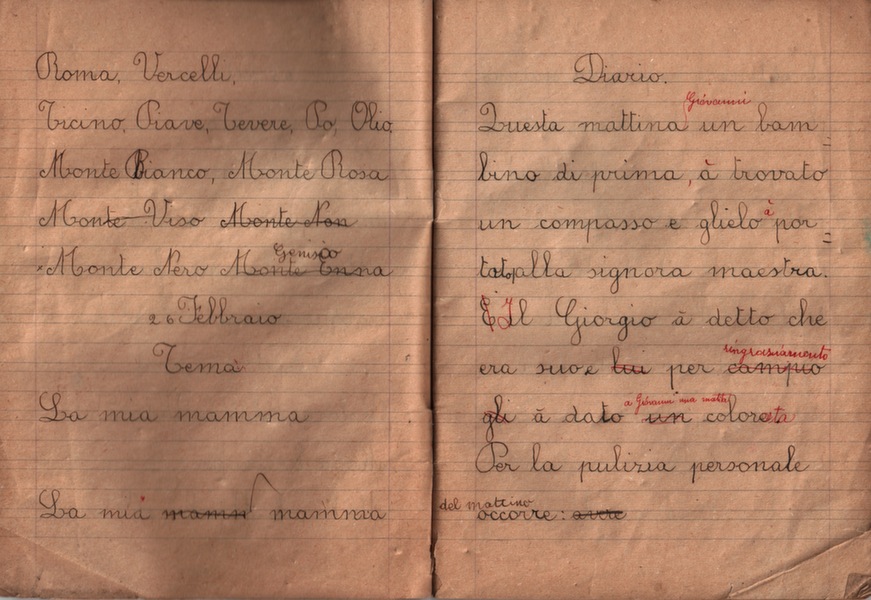 Roma, Vercelli,
Ticino, Piave, Tevere, Po, Olio,
Monte Bianco, Monte Rosa
Monte Viso Monte Non
Genisio
Monte Nero Monte Enna
26 Febbraio
Tema
La mia mamma
La mia mamm mamma
Diario.
Giovanni
Questa mattina un bam
bino di prima, à trovato
à
un compasso e glielo por
alla signora maestra.
Il Giorgio à detto che
ringrasiamento
era suo e lui per campio
a Giovanni una matita
gli à dato un colorata
Per la pulizia personale
del mattino
occorre: